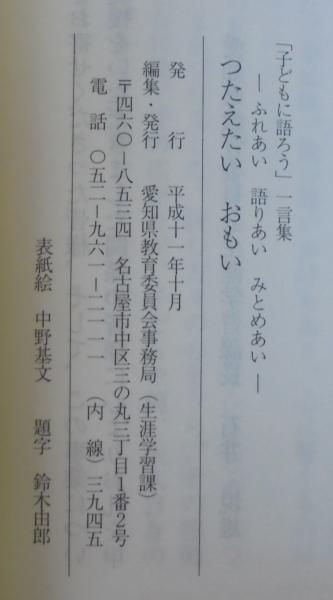 「子どもに語ろう」一言集
―ふれあい　語りあい　みとめあい―
つたえたい　おもい
発　行　平成十一年十月
編集・発行　愛知県教育委員会事務局（生涯学習課）
〒四六〇―八五三四　名古屋市中区三の丸三丁目1番2号
電　話　〇五二―九六一―二一一一（内　線）三九四五
表紙絵　中野基文　題字　鈴木由郎